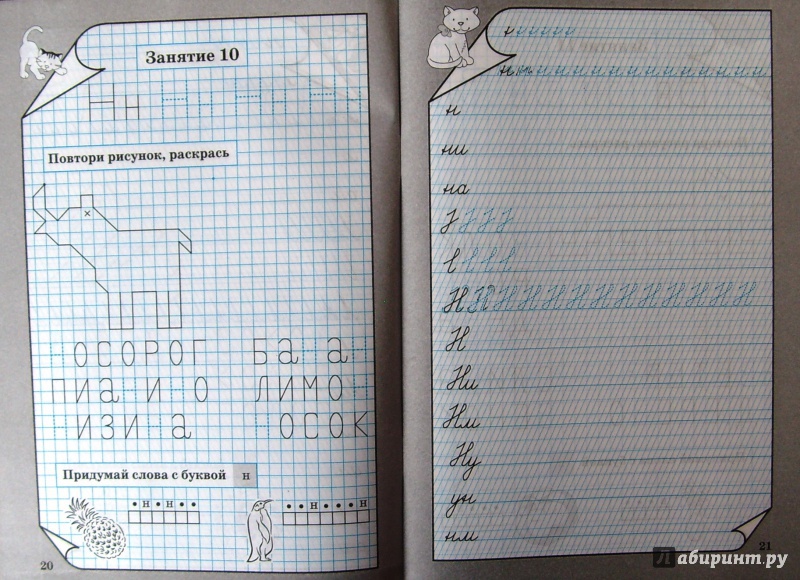 Занятие 10
Нн
Повтори рисунок, раскрась
НОСОРОГ БаНаН
ПИаНИНО ЛИМОН
НИЗИНа НОСОК
Придумай слова с буквой н
• н • н • •
• • н • • • н
20
н
ни
на
Н Н Н Н Н Н Н Н Н Н Н Н Н
Н
Ни
Нм
Ну
ун
нм
21
Лабиринт.ру